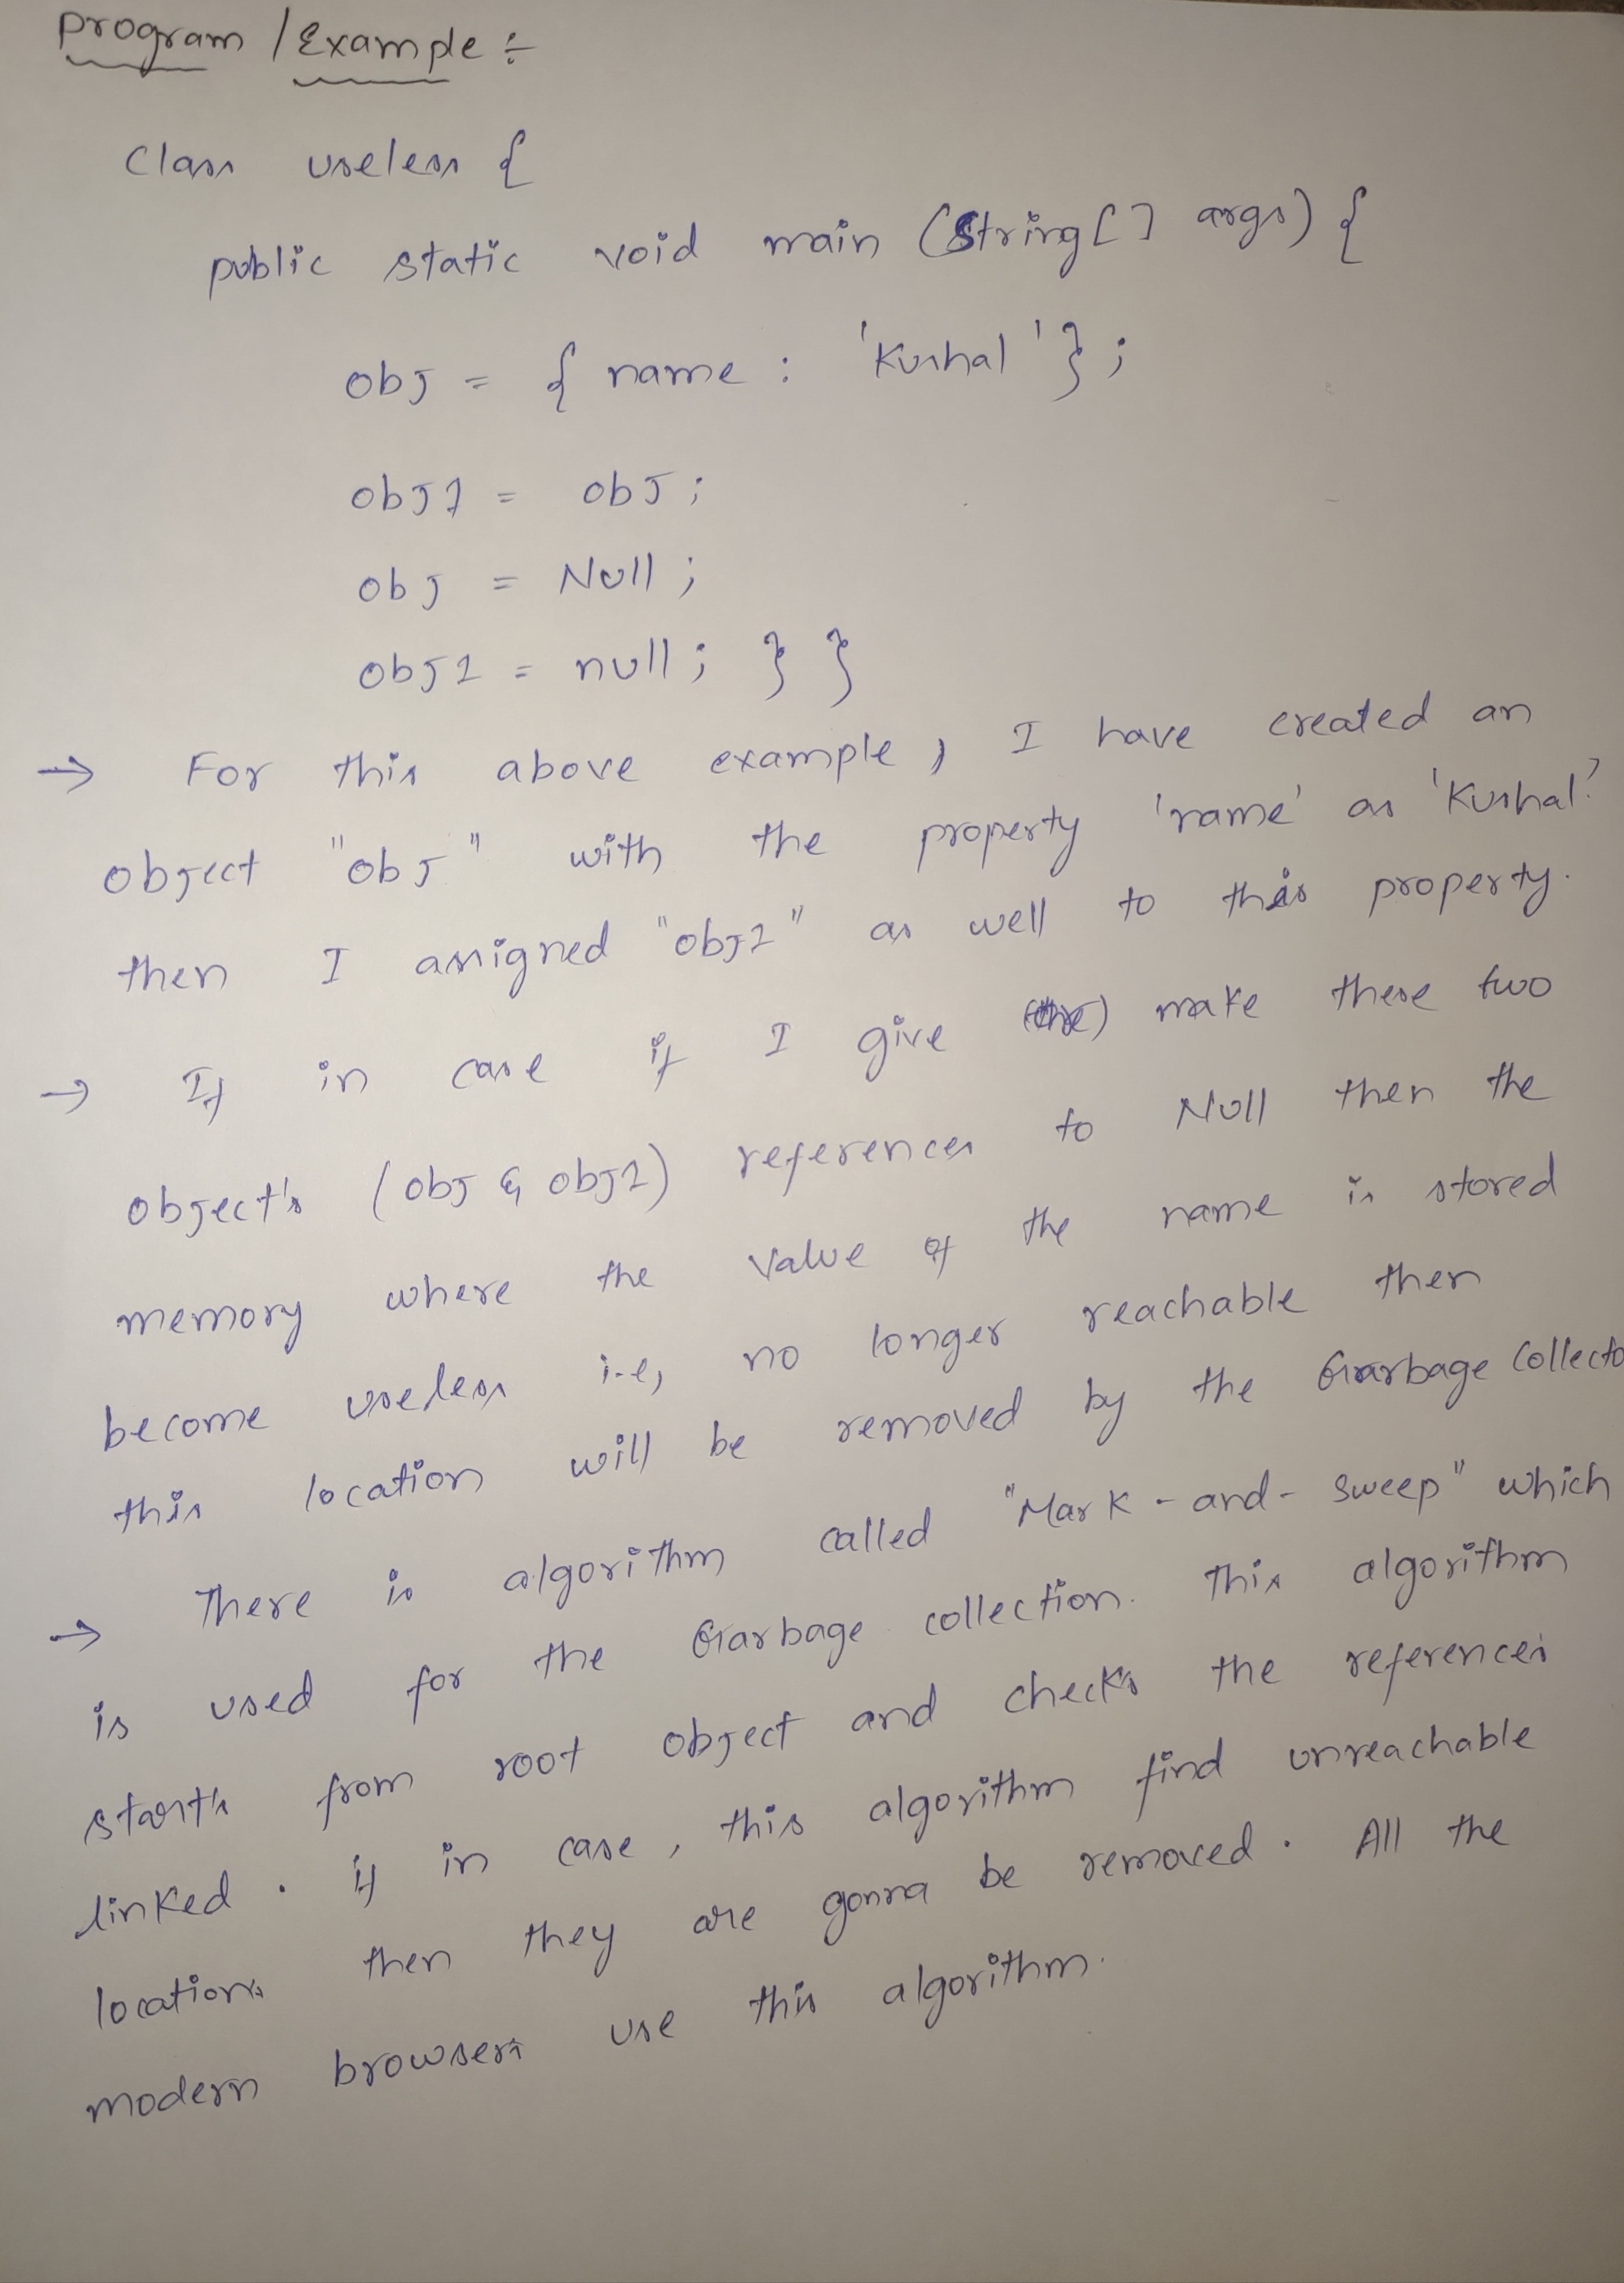 Program / Example :-
Class useless {
public static void main (String[] args) {
obj = { name : 'Kushal' };
obj1 = obj;
obj = Null;
obj1 = null; } }
→ For this above example, I have created an
object "obj" with the property 'name' as 'Kushal'.
then I assigned "obj1" as well to this property.
→ If in case if I give make these two
object's (obj & obj1) references to Null then the
memory where the value of the name is stored
become useless i.e, no longer reachable then
this location will be removed by the Garbage Collecto
→ There is algorithm called "Mark-and-Sweep" which
is used for the Garbage collection. This algorithm
start's from root object and check's the references
linked. if in case, this algorithm find unreachable
locations then they are gonna be removed. All the
modern browsers use this algorithm.